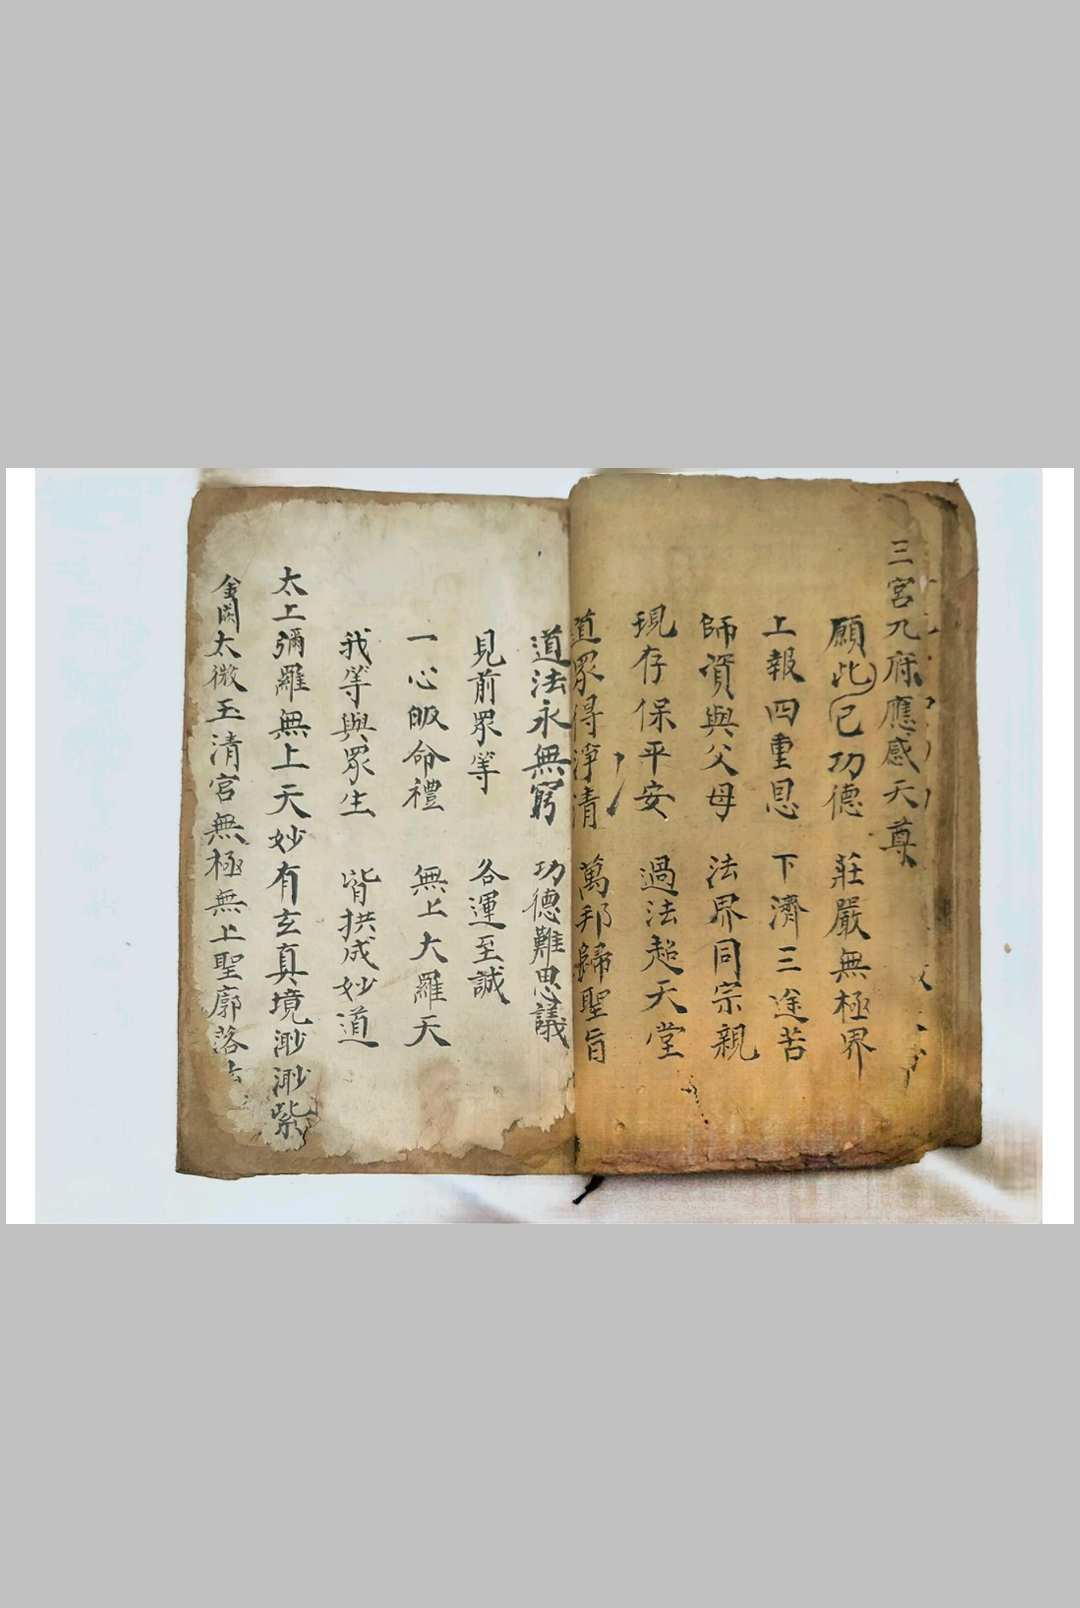 三宮九府應感天尊
願此已功德 莊嚴無極界
上報四重恩 下濟三途苦
師資與父母 法界同宗親
現存保平安 過法超天堂
道眾得淨清 萬邦歸聖旨
道法永無窮 功德難思議
見前眾等 各運至誠
一心皈命禮 無上大羅天
我等與眾生 皆拱成妙道
太上彌羅無上天妙有玄真境渺渺紫
金闕太微玉清宮無極無上聖廓落